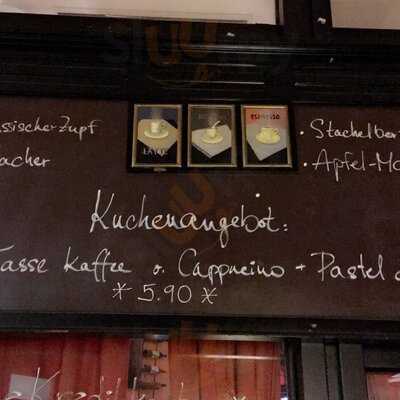 ssischer Zupf
acher
LATTE
ESPRESSO
· Stachelber
· Apfel-Mo
Kuchenangebot:
Tasse Kaffee o. Cappucino + Pastel d
* 5.90 *